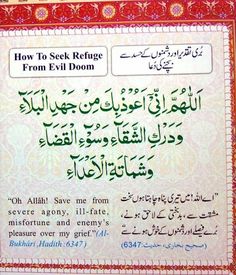 How To Seek Refuge
From Evil Doom
بُری تقدیر اور دشمنوں کے حسد سے
بچنے کی دُعا
اَللّٰهُمَّ اِنِّیْ اَعُوْذُبِكَ مِنْ جَهْدِ الْبَلَآءِ
وَدَرْكِ الشَّقَآءِ وَسُوْٓءِ الْقَضَآءِ
وَشَمَاتَةِ الْاَعْدَآءِ
"Oh Allâh! Save me from
severe agony, ill-fate,
misfortune and enemy's
pleasure over my grief." (Al-
Bukhâri, Hadith : 6347)
"اے اللہ! میں تیری پناہ چاہتا ہوں سخت
مشقت سے، بدبختی کے لاحق ہونے،
بُرے فیصلے اور دشمنوں کے خوش ہونے سے"
(صحیح بخاری، حدیث: 6347)